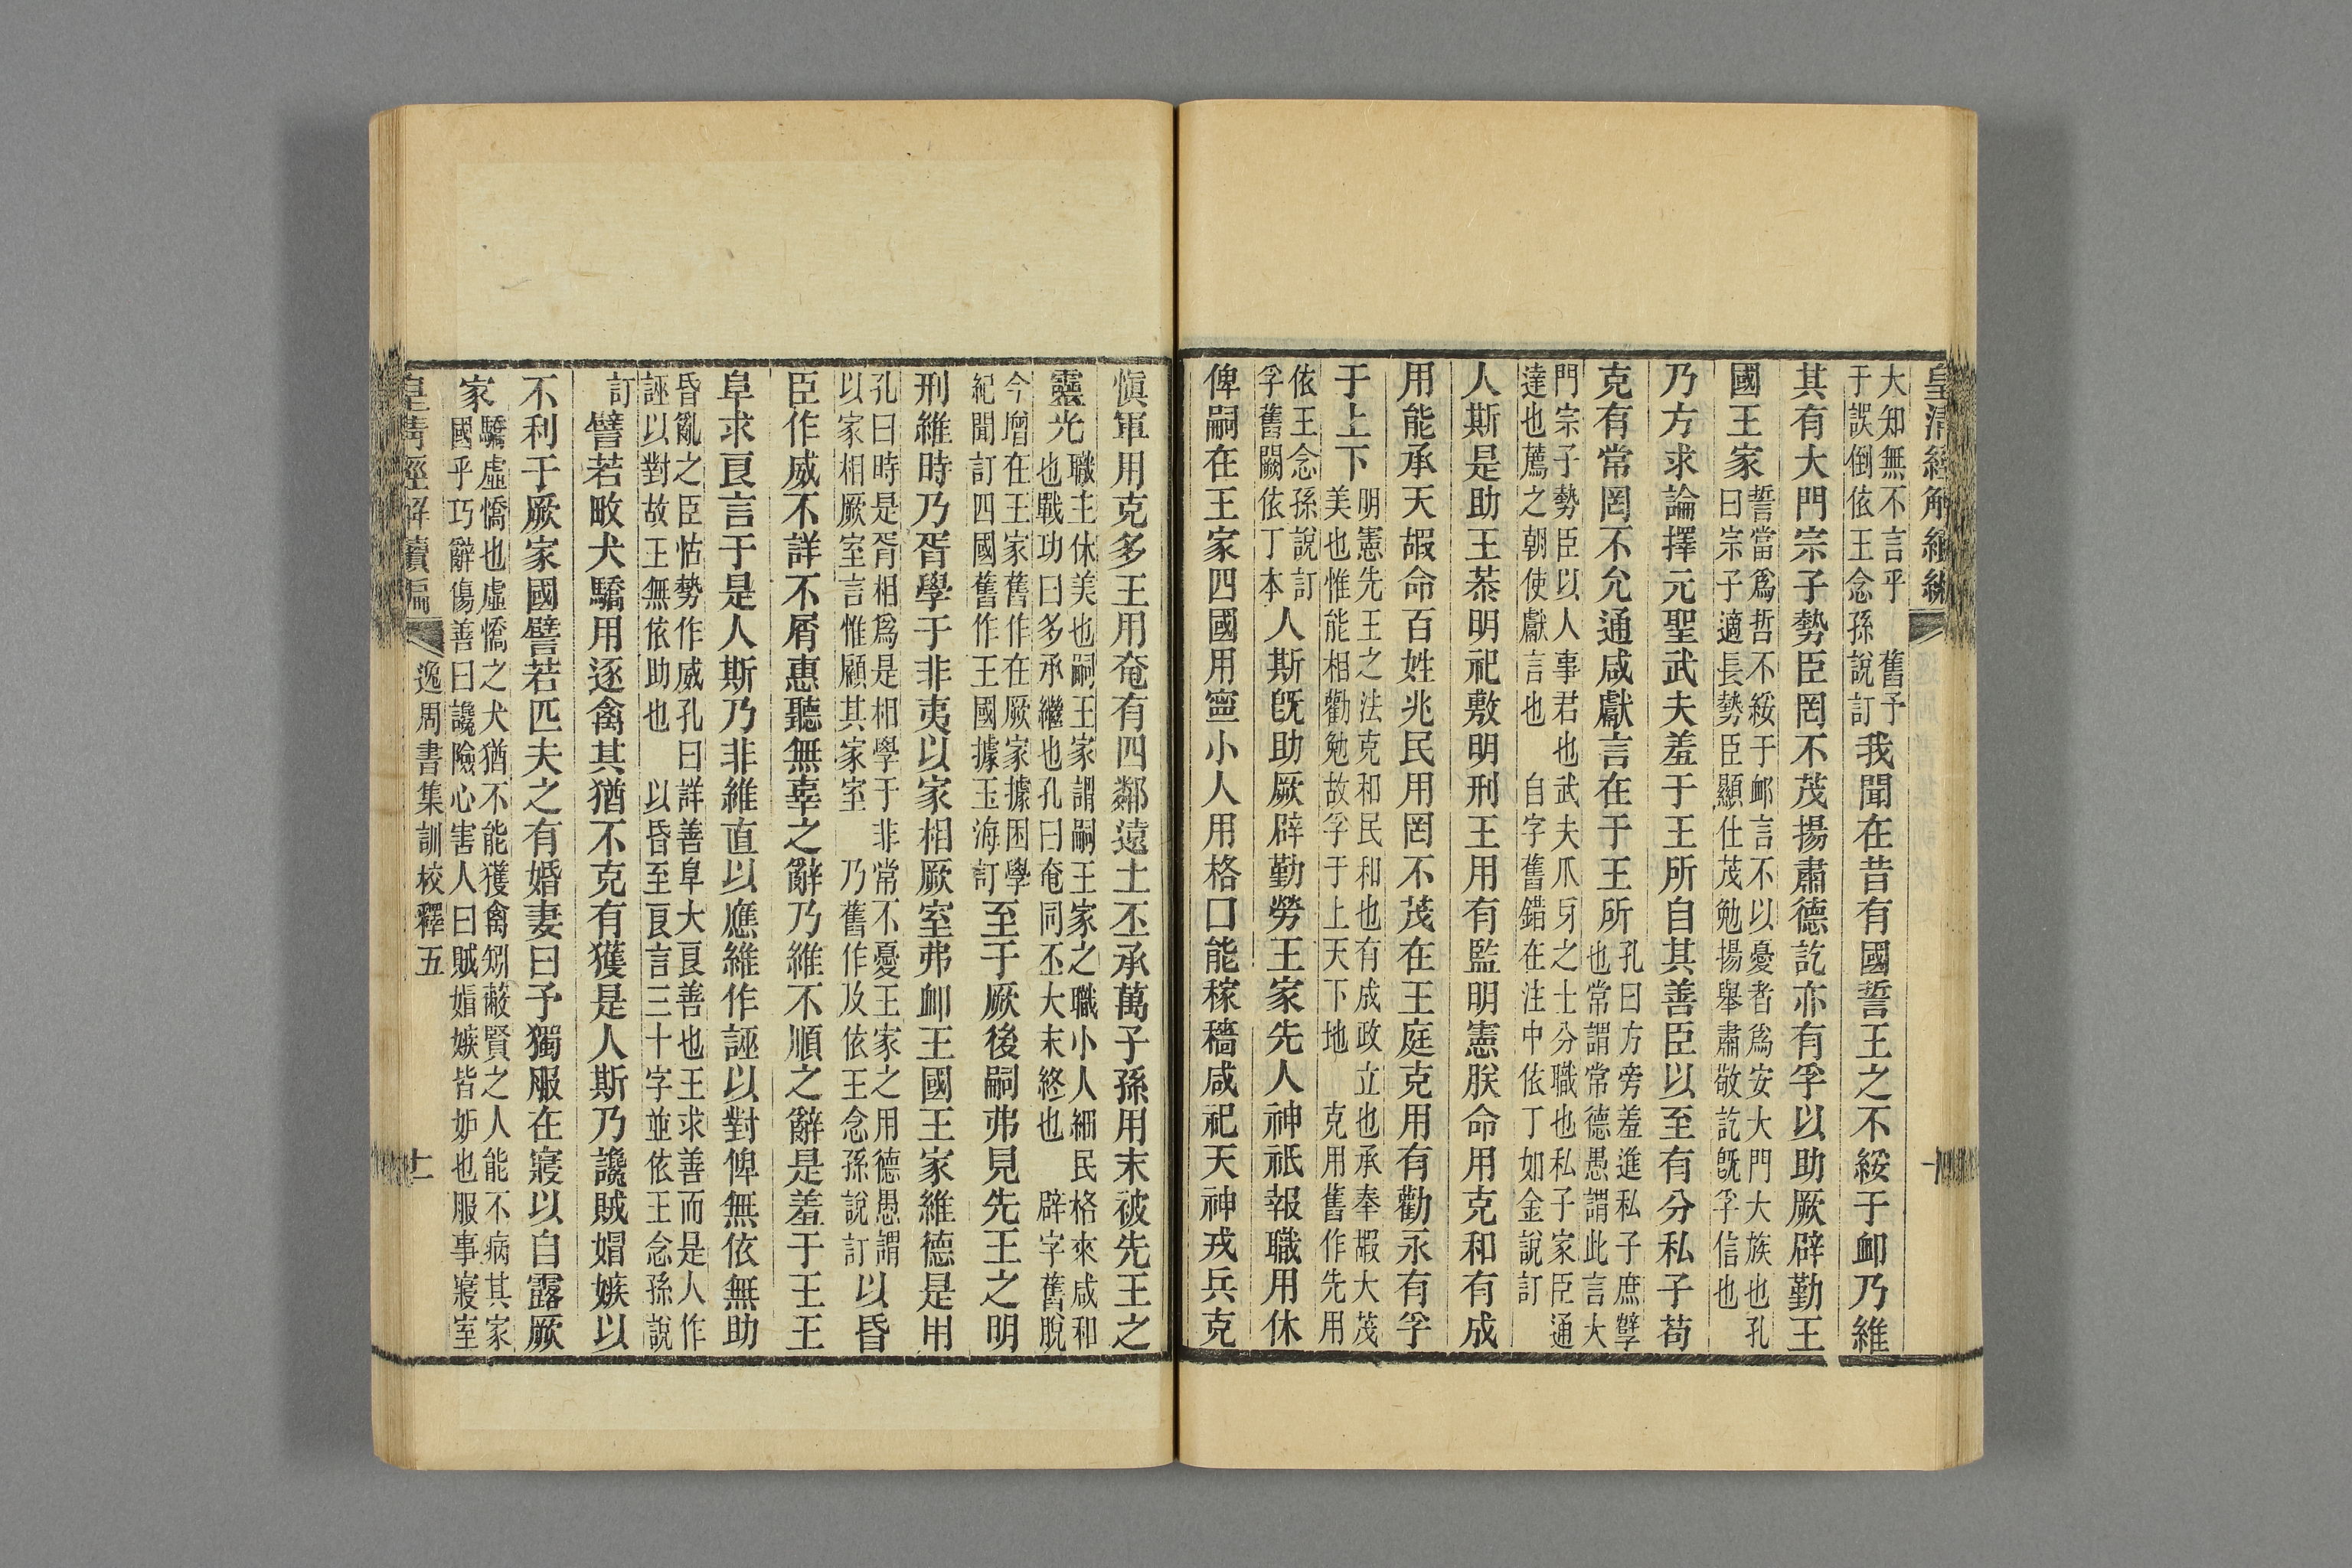 皇清經解續編
大知無不言乎舊予
于誤倒依王念孫說訂我聞在昔有國誓王之不綏于卹乃維
其有大門宗子勢臣罔不茂揚肅德訖亦有孚以助厥辟勤王
國王家誓當爲哲不綏于卹言不以憂者爲安大門大族也孔
曰宗子適長勢臣顯仕茂勉揚舉肅敬訖旣孚信也
乃方求論擇元聖武夫羞于王所自其善臣以至有分私子苟
克有常罔不允通咸獻言在于王所孔曰方旁羞進私子庶孽
也常謂常德愚謂此言大
門宗子勢臣以人事君也武夫爪牙之士分職也私子家臣通
達也薦之朝使獻言也自字舊錯在注中依丁如金說訂
人斯是助王恭明祀敷明刑王用有監明憲朕命用克和有成
用能承天嘏命百姓兆民用罔不茂在王庭克用有勸永有孚
于上下明憲先王之法克和民和也有成政立也承奉嘏大茂
美也惟能相勸勉故孚于上天下地克用舊作先用
依王念孫說訂
孚舊闕依丁本人斯旣助厥辟勤勞王家先人神祇報職用休
俾嗣在王家四國用寧小人用格口能稼穡咸祀天神戎兵克
愼軍用克多王用奄有四鄰遠土丕承萬子孫用末被先王之
靈光職主休美也嗣王家謂嗣王家之職小人細民格來咸和
也戰功曰多承繼也孔曰奄同丕大末終也辟字舊脫
今增在王家舊作在厥家據困學
紀聞訂四國舊作王國據玉海訂至于厥後嗣弗見先王之明
刑維時乃胥學于非夷以家相厥室弗卹王國王家維德是用
孔曰時是胥相爲是相學于非常不憂王家之用德愚謂
以家相厥室言惟顧其家室乃舊作及依王念孫說訂以昏
臣作威不詳不屑惠聽無辜之辭乃維不順之辭是羞于王王
阜求良言于是人斯乃非維直以應維作誣以對俾無依無助
昏亂之臣怙勢作威孔曰詳善阜大良善也王求善而是人作
誣以對故王無依助也以昏至良言三十字並依王念孫說
訂譬若畋犬驕用逐禽其猶不克有獲是人斯乃讒賊媢嫉以
不利于厥家國譬若匹夫之有婚妻曰予獨服在寢以自露厥
家驕虛憍也虛憍之犬猶不能獲禽矧蔽賢之人能不病其家
國乎巧辭傷善曰讒險心害人曰賊媢嫉皆妒也服事寢室
皇清經解續編
逸周書集訓校釋五
十一